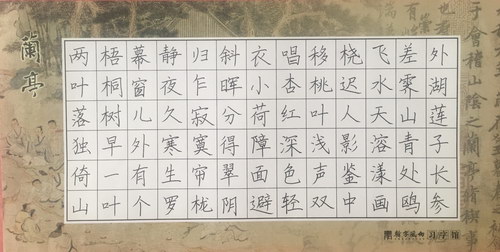 于會稽山陰之蘭亭
外湖莲子长参
差霁山青处鸥
飞水天溶漾画
桡迟人影鉴中
移桃叶浅声双
唱杏红深色轻
衣小荷障面避
斜晖分得翠阴
归乍寂寞帘栊
静夜久寒生罗
幕窗儿外有个
梧桐树早一叶
两叶落独倚山
蘭亭